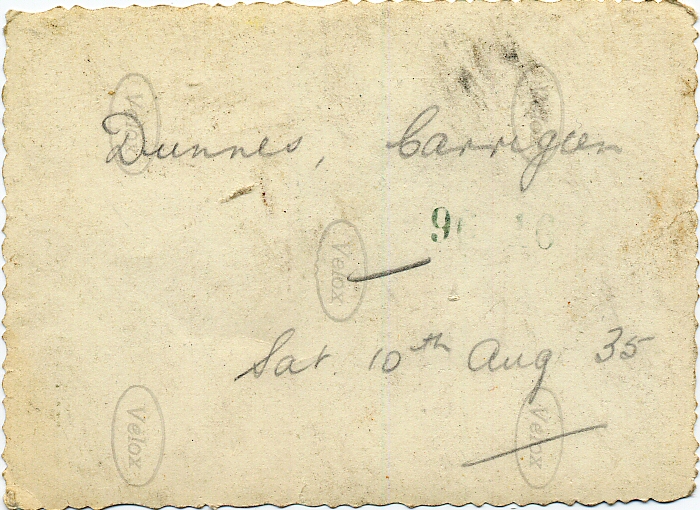 Velox Velox
Dunnes, Carrigeen
9
Velox
Sat. 10th Aug 35
Velox Velox